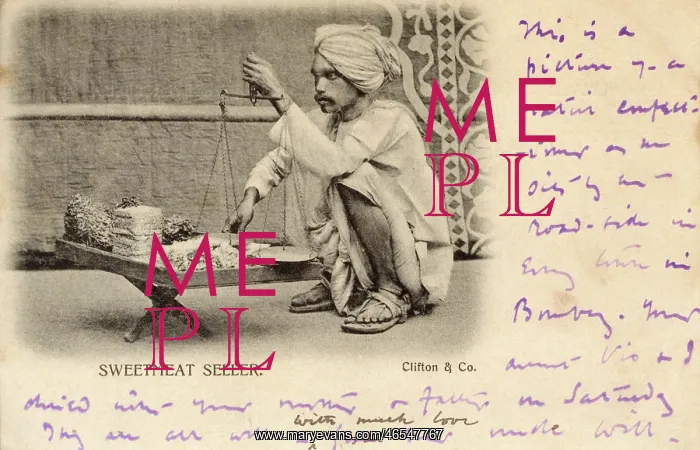 This is a
picture of a
native confect-
ioner as one
sits by the
Road-side in
Every town in
Bombay. Your
aunt Vio & I
dined with your mother & Father on Saturday
They are all well
with much love
from Uncle Will.
SWEETMEAT SELLER.
Clifton & Co.
ME
PL
ME
PL
www.maryevans.com/46547767